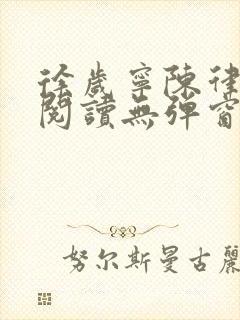 徐歲寧陳律
閱讀無彈窗
努尔斯曼古麗